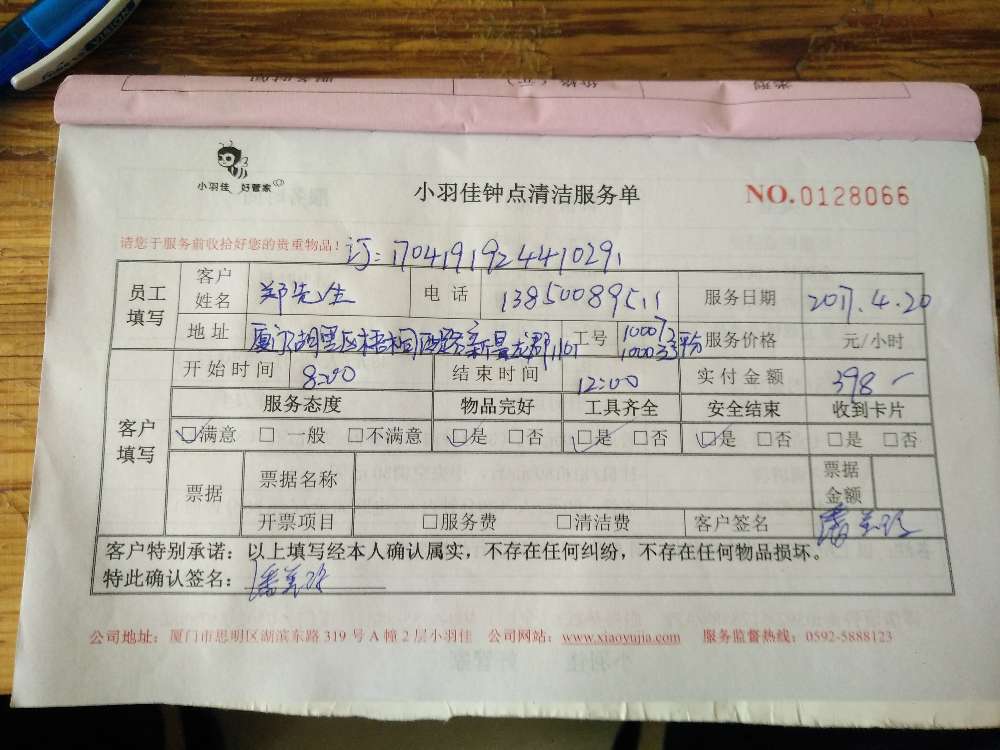 小羽佳 好管家
小羽佳钟点清洁服务单
NO.0128066
请您于服务前收拾好您的贵重物品！
订：170419192441029１
员工填写 客户姓名 郑先生 电话 13850089511 服务日期 2017.4.20
地址 厦门湖里区梧桐西路新景龙郡1101 工号 服务价格 元/小时
客户填写 开始时间 8:00 结束时间 12:00 实付金额 398
服务态度 物品完好 工具齐全 安全结束 收到卡片
☑满意 □一般 □不满意 ☑是 □否 ☑是 □否 ☑是 □否 □是 □否
票据 票据名称 票据金额
开票项目 □服务费 □清洁费 客户签名
客户特别承诺：以上填写经本人确认属实，不存在任何纠纷，不存在任何物品损坏。
特此确认签名：
公司地址：厦门市思明区湖滨东路 319 号 A 幢 2 层小羽佳 公司网站：www.xiaoyujia.com 服务监督热线：0592-5888123